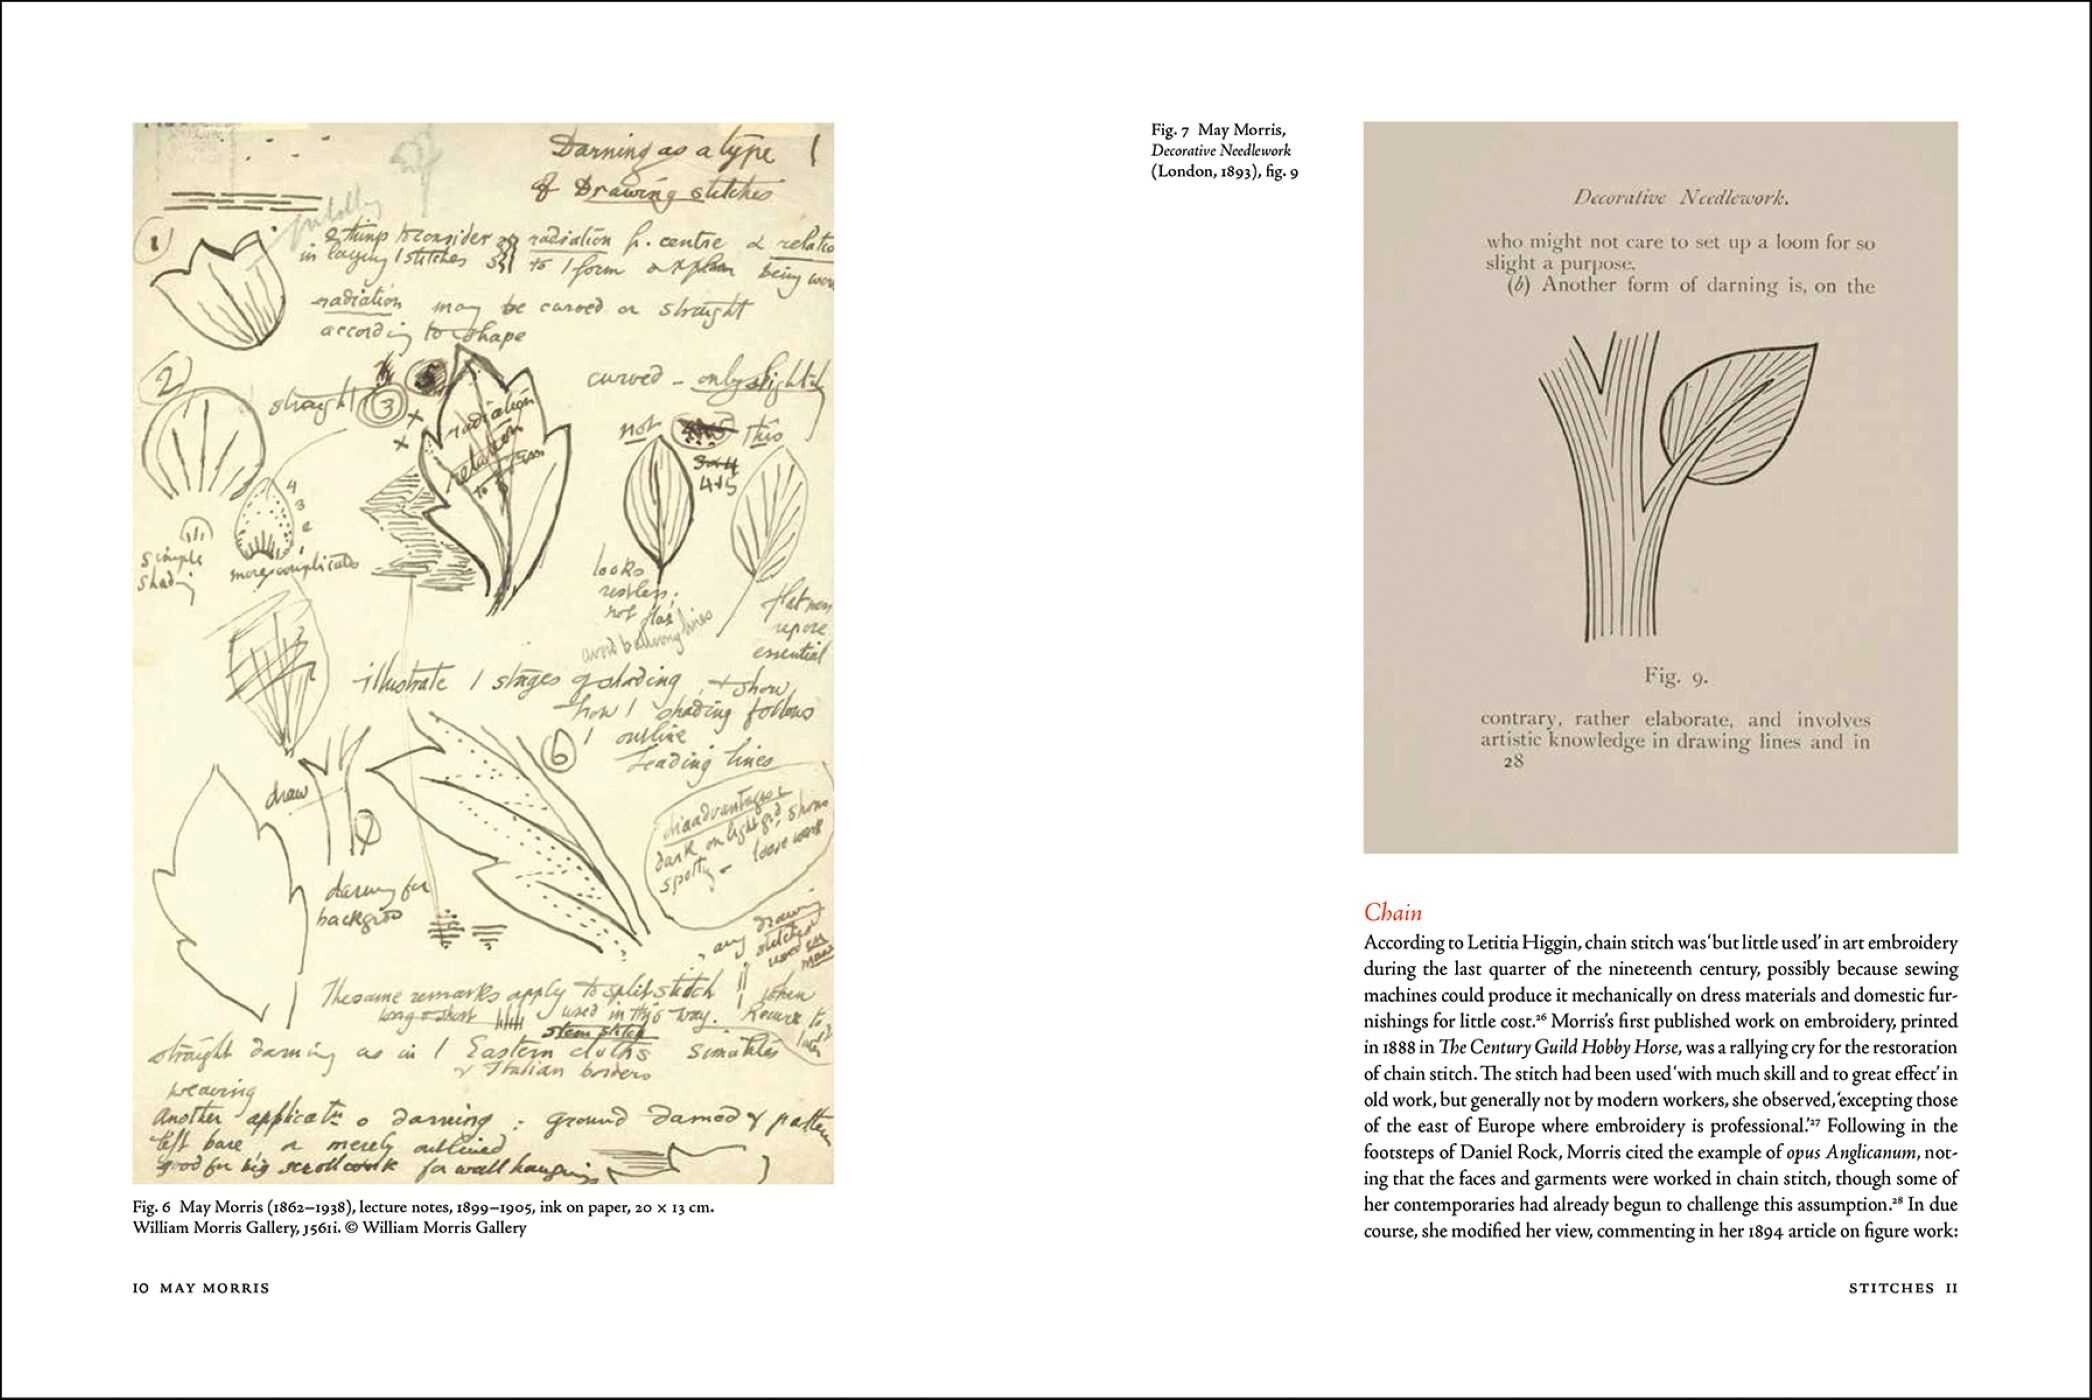 Darning as a type
of Drawing stitches
1
2 things to consider radiation fr. centre & relatio
in laying / stitches to / form being wor
radiation may be curved or straight
according to shape
2
straight 3
5
curved – only slightly
radiation
relation
to
not this
4+5
4
3
2
1
simple
shading
more complicated
looks
restless,
not flat
avoid
flatness
repose
essential
illustrate / stages of shading, + show
how / shading follows
/ outline
leading lines
6
draw
disadvantages
dark on light grd, shows
spotty – loose work
darning for
backgrd
any drawing
stitches
used en
masse
The same remarks apply to split stitch
long & short used in this way.
when
Recur to
later
stem stitch
straight darning as in / Eastern cloths simulates
& Italian borders
weaving
Another applicatn o darning : ground darned & pattern
left bare or merely outlined
good for big scrollwork for wall hangings
Fig. 6 May Morris (1862–1938), lecture notes, 1899–1905, ink on paper, 20 × 13 cm.
William Morris Gallery, J561i. © William Morris Gallery
10 MAY MORRIS
Fig. 7 May Morris,
Decorative Needlework
(London, 1893), fig. 9
Decorative Needlework.
who might not care to set up a loom for so
slight a purpose.
(b) Another form of darning is, on the
Fig. 9.
contrary, rather elaborate, and involves
artistic knowledge in drawing lines and in
28
Chain
According to Letitia Higgin, chain stitch was ‘but little used’ in art embroidery
during the last quarter of the nineteenth century, possibly because sewing
machines could produce it mechanically on dress materials and domestic fur-
nishings for little cost.²⁶ Morris’s first published work on embroidery, printed
in 1888 in The Century Guild Hobby Horse, was a rallying cry for the restoration
of chain stitch. The stitch had been used ‘with much skill and to great effect’ in
old work, but generally not by modern workers, she observed, ‘excepting those
of the east of Europe where embroidery is professional.’²⁷ Following in the
footsteps of Daniel Rock, Morris cited the example of opus Anglicanum, not-
ing that the faces and garments were worked in chain stitch, though some of
her contemporaries had already begun to challenge this assumption.²⁸ In due
course, she modified her view, commenting in her 1894 article on figure work:
STITCHES 11